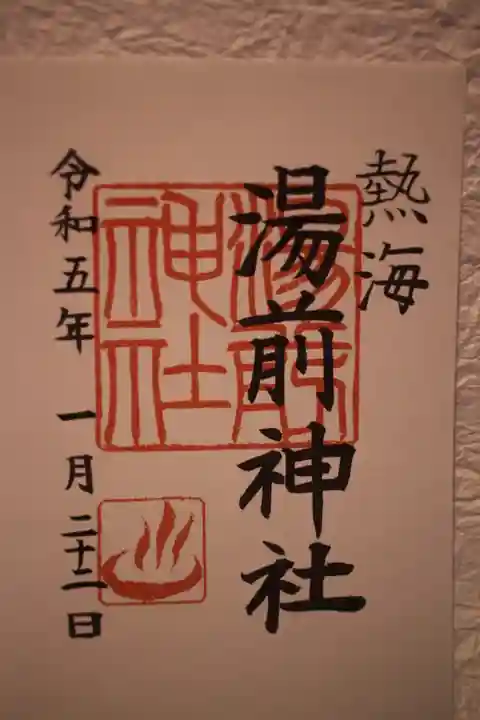 熱海
湯前神社
湯前神社
令和五年 一月二十二日